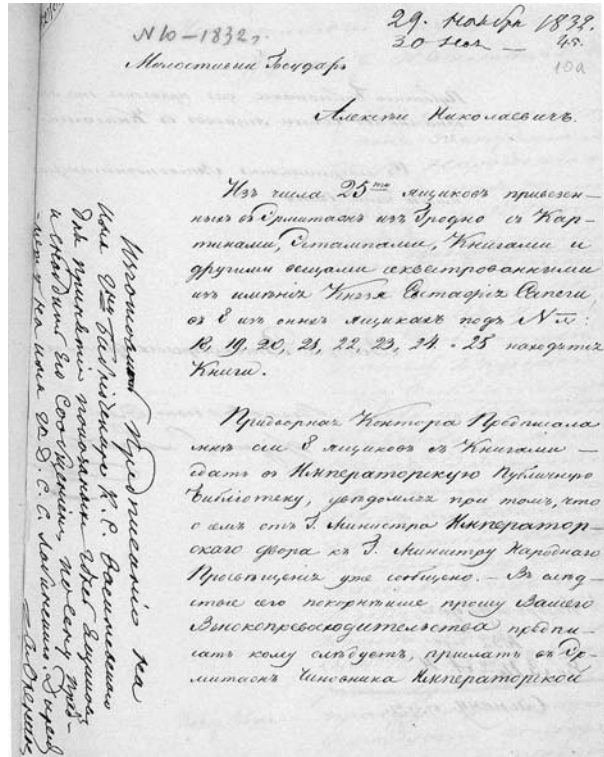 N 10 – 1832 г.
29. Ноября 1832.
30 Ноя —
10а
Милостивый Государь
Алексѣй Николаевичъ.
Изъ числа 25ти ящиковъ привезен-
ныхъ въ Эрмитажъ изъ Гродно съ Кар-
тинами, Эстампами, Книгами и
другими вещами секвестрованными
изъ имѣнія Князя Евстафія Сапеги,
въ 8 изъ оныхъ ящикахъ подъ №:
18, 19, 20, 21, 22, 23, 24 и 25 находятся
Книги.
Придворная Контора Предписала
мнѣ сіи 8 ящиковъ съ Книгами —
сдать въ Императорскую Публичную
Библіотеку, увѣдомляя при томъ, что
о семъ отъ Г. Министра Император-
скаго двора къ Г. Министру Народнаго
Просвѣщенія уже сообщено. — Въ слѣд-
ствіе сего покорнѣйше прошу Вашего
Высокопревосходительства предпи-
сать кому слѣдуетъ, прислать въ Эр-
митажъ Чиновника Императорской
Изготовить Предписаніе на
имя Гна Библіотекаря К. С. Васильевскаго
для принятія показанныхъ ящиковъ
и снабдить его сообщеніемъ по сему пред-
мету на имя Гна Д. С. С.